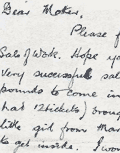 Dear Mother,
Please f
Sale of Work. Hope yo
very successful sal
pounds to come in
had 12 tickets) broug
little girl from Man
to get inside. I wou